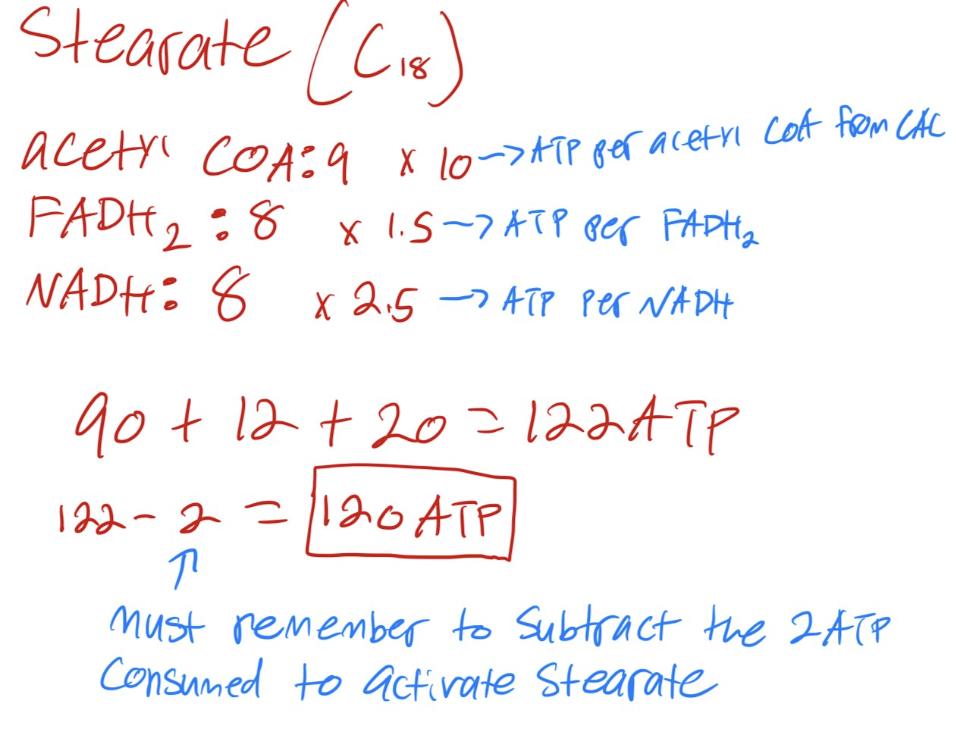 Stearate (C18)
acetyl COA: 9 x 10 -> ATP per acetyl CoA from CAC
FADH2 : 8 x 1.5 -> ATP per FADH2
NADH: 8 x 2.5 -> ATP per NADH
90 + 12 + 20 = 122 ATP
122 - 2 = 120 ATP
must remember to subtract the 2 ATP
Consumed to activate Stearate